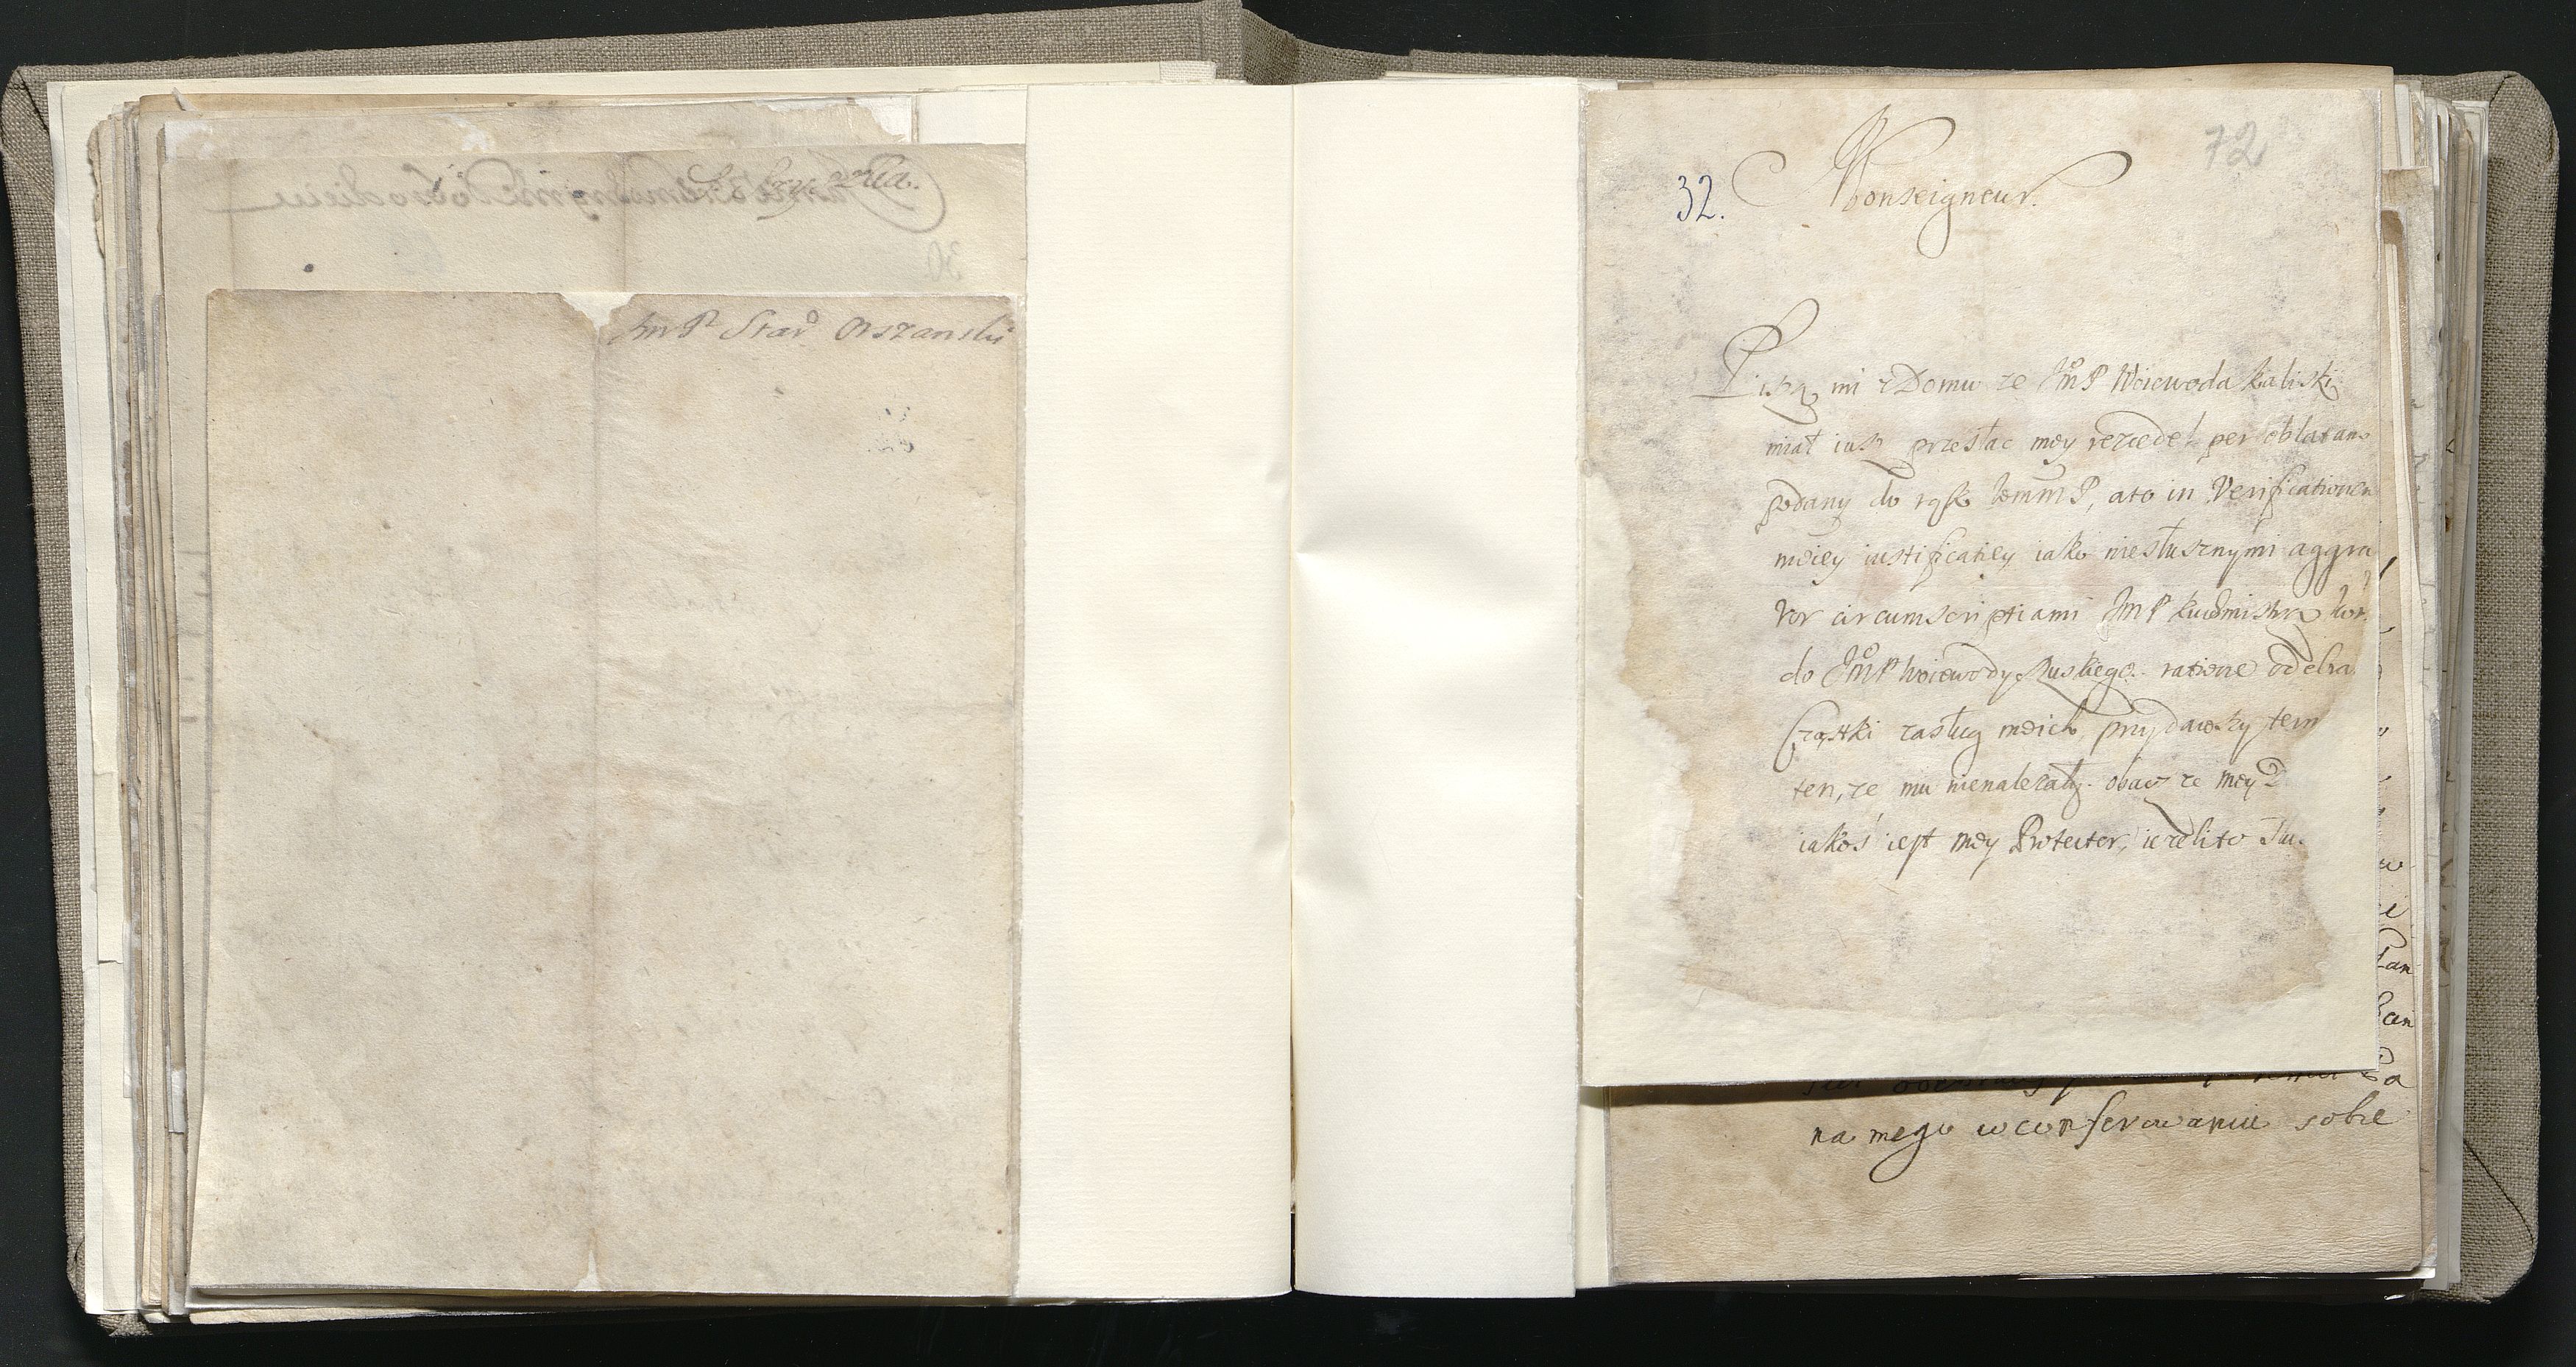 ImP Star Orszanski
72
32. Monseigneur.
Piszą mi z Domu ze JmP Woiewoda kaliski
miał iusz przesłac moy rezedel per oblatam
podany do rąk IemmP, ato in Verificationem
moiey iustificatiey iako niesłusznymi aggra
vor circumscriptiami JmP kuchmistrz kor.
do JmP Woiewody Ruskiego. ratione odebra
Cząstki zasług moich, przydawszy tem
ten, ze mu nienalezały. obacz ze moy D
iakoś iest moy Protector, iezeli to Tu.
na mego w conferowaniu sobie